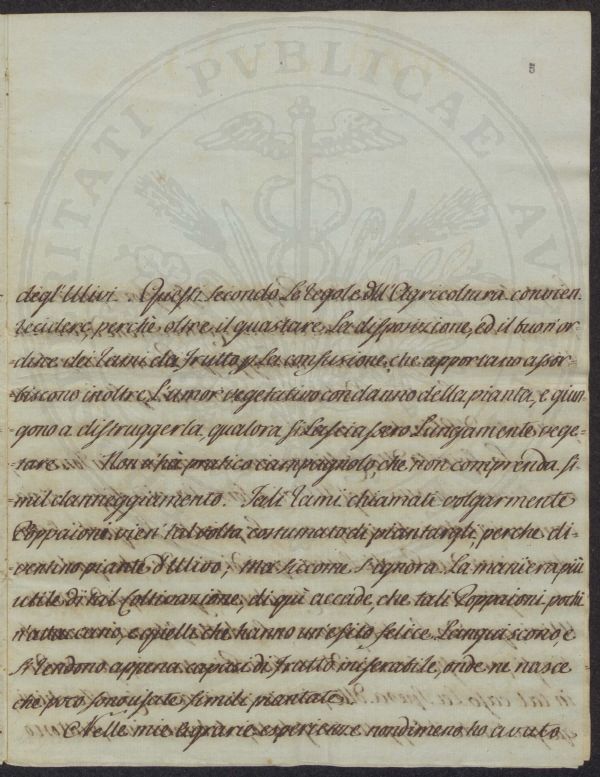 PVBLICAE
degl'Ulivi. Questi secondo Le regole dell'Agricoltura convien
recidere, perchè oltre il guastare La disposizione, ed il buon or-
-dine dei rami da frutto p La confusione, che apportano assor-
-biscono inoltre L'umor vegetativo con danno della pianta, e giun-
gono a distruggerla, qualora si Lasciassero Lungamente vege-
-tare. Non v'hà pratico campagnolo, che non comprenda si
mil danneggiamento. Tali rami chiamati volgarmente
Poppaioni vien talvolta costumato di piantargli, perche di-
-ventino piante d'Ulivo; ma siccome s'ignora La maniera più
utile di tal Coltivazione, di quì accade, che tali Poppaioni pochi
n'attaccano, e quelli che hanno un esito felice Languiscono, e
si rendono appena capaci di frutto miserabile, onde ne nasce
che poco sono usate simili piantate
Nelle mie Agrarie esperienze nondimeno ho avuto